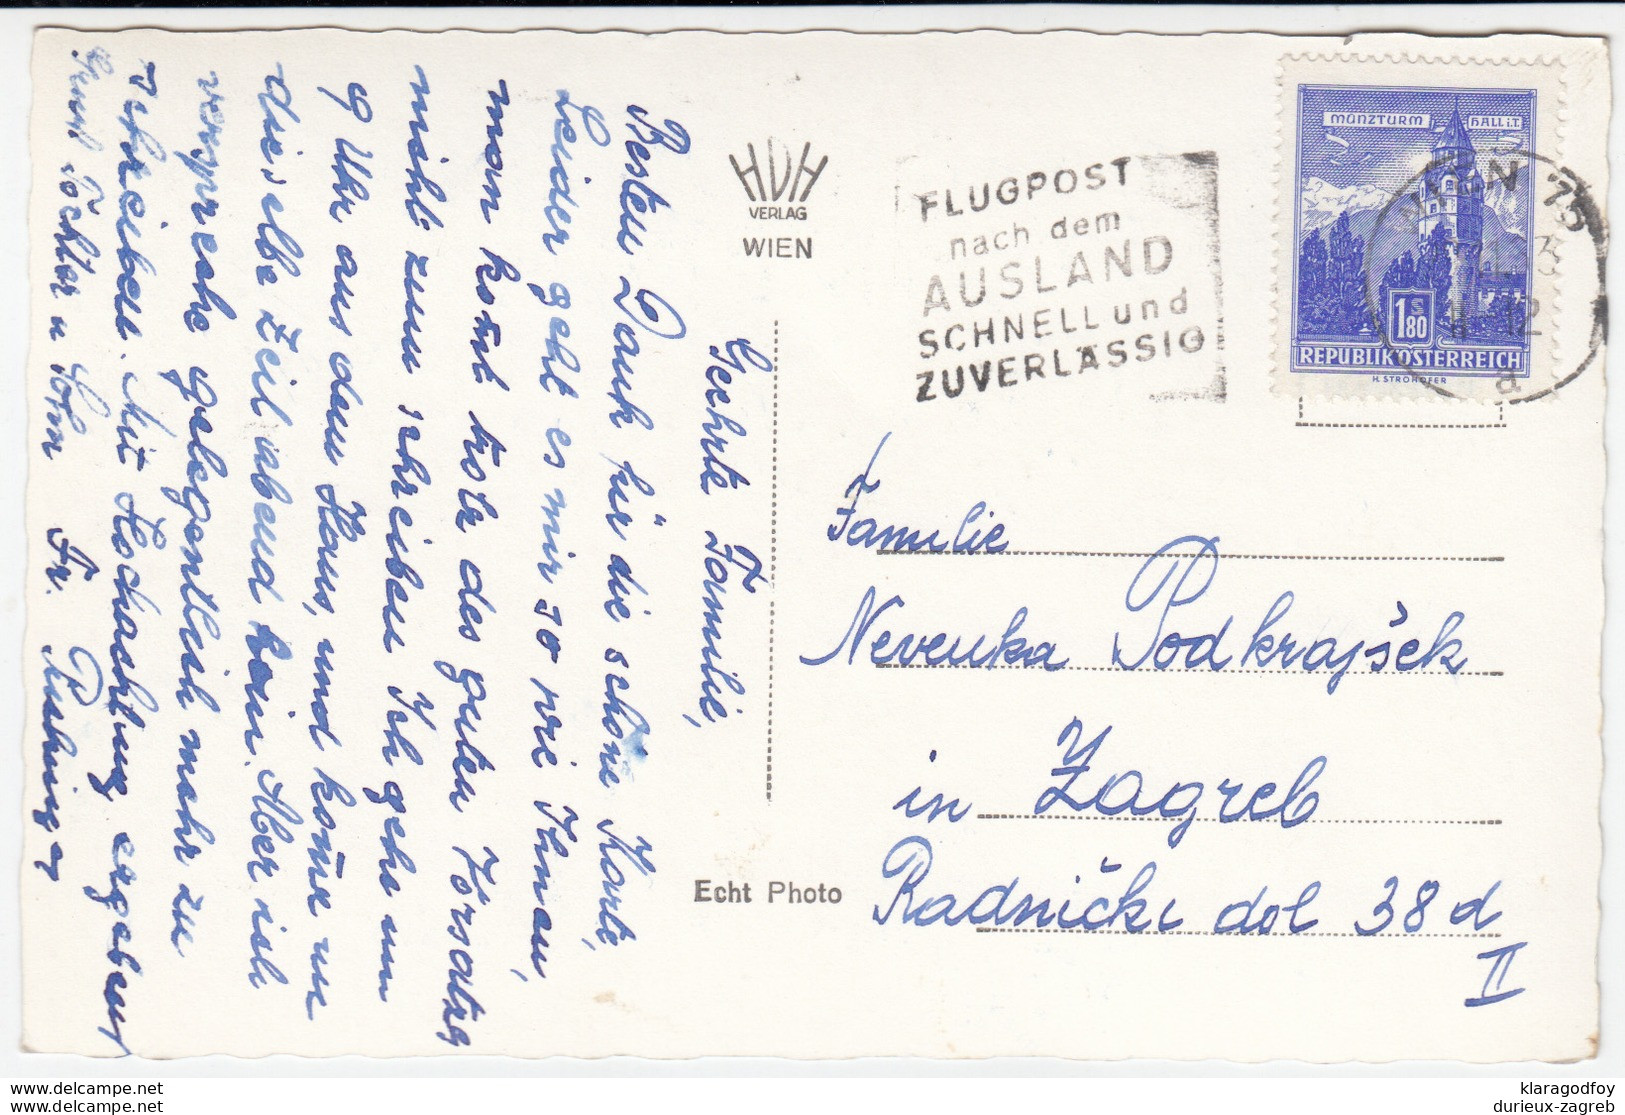 Geehrte Familie,
Besten Dank für die schöne Karte,
Leider geht es mir so wie Ihnen,
man kom̄t trotz des guten Vorsatzes
nicht zum schreiben Ich gehe um
9 Uhr aus dem Haus, und kom̄e um
dieselbe Zeit abend heim. Aber ich
verspreche gelegentlich mehr zu
schreiben. Mit Hochachtung ergebenst
samt Töchter u Sohn Fr.
HDH
VERLAG
WIEN
FLUGPOST
nach dem
AUSLAND
SCHNELL und
ZUVERLÄSSIG
MÜNZTURM HALL i.T.
1.80 S
REPUBLIK ÖSTERREICH
H. STROHOFER
WIEN 75
12
a
Familie
Nevenka Podkrajšek
in Zagreb
Radnički dol 38 d
II
Echt Photo
delcampe.net
delcampe.net
klaragodfoy
durieux-zagreb